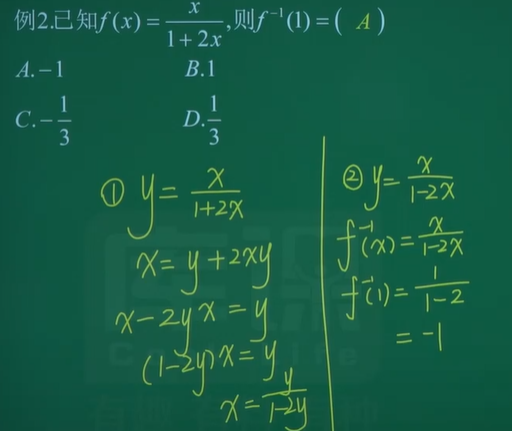 例2.已知f(x)=x/(1+2x),则f⁻¹(1)=( A )
A.-1 B.1
C.-1/3 D.1/3
① y=x/(1+2x)
x=y+2xy
x-2yx=y
(1-2y)x=y
x=y/(1-2y)
② y=x/(1-2x)
f⁻¹(x)=x/(1-2x)
f⁻¹(1)=1/(1-2)
=-1